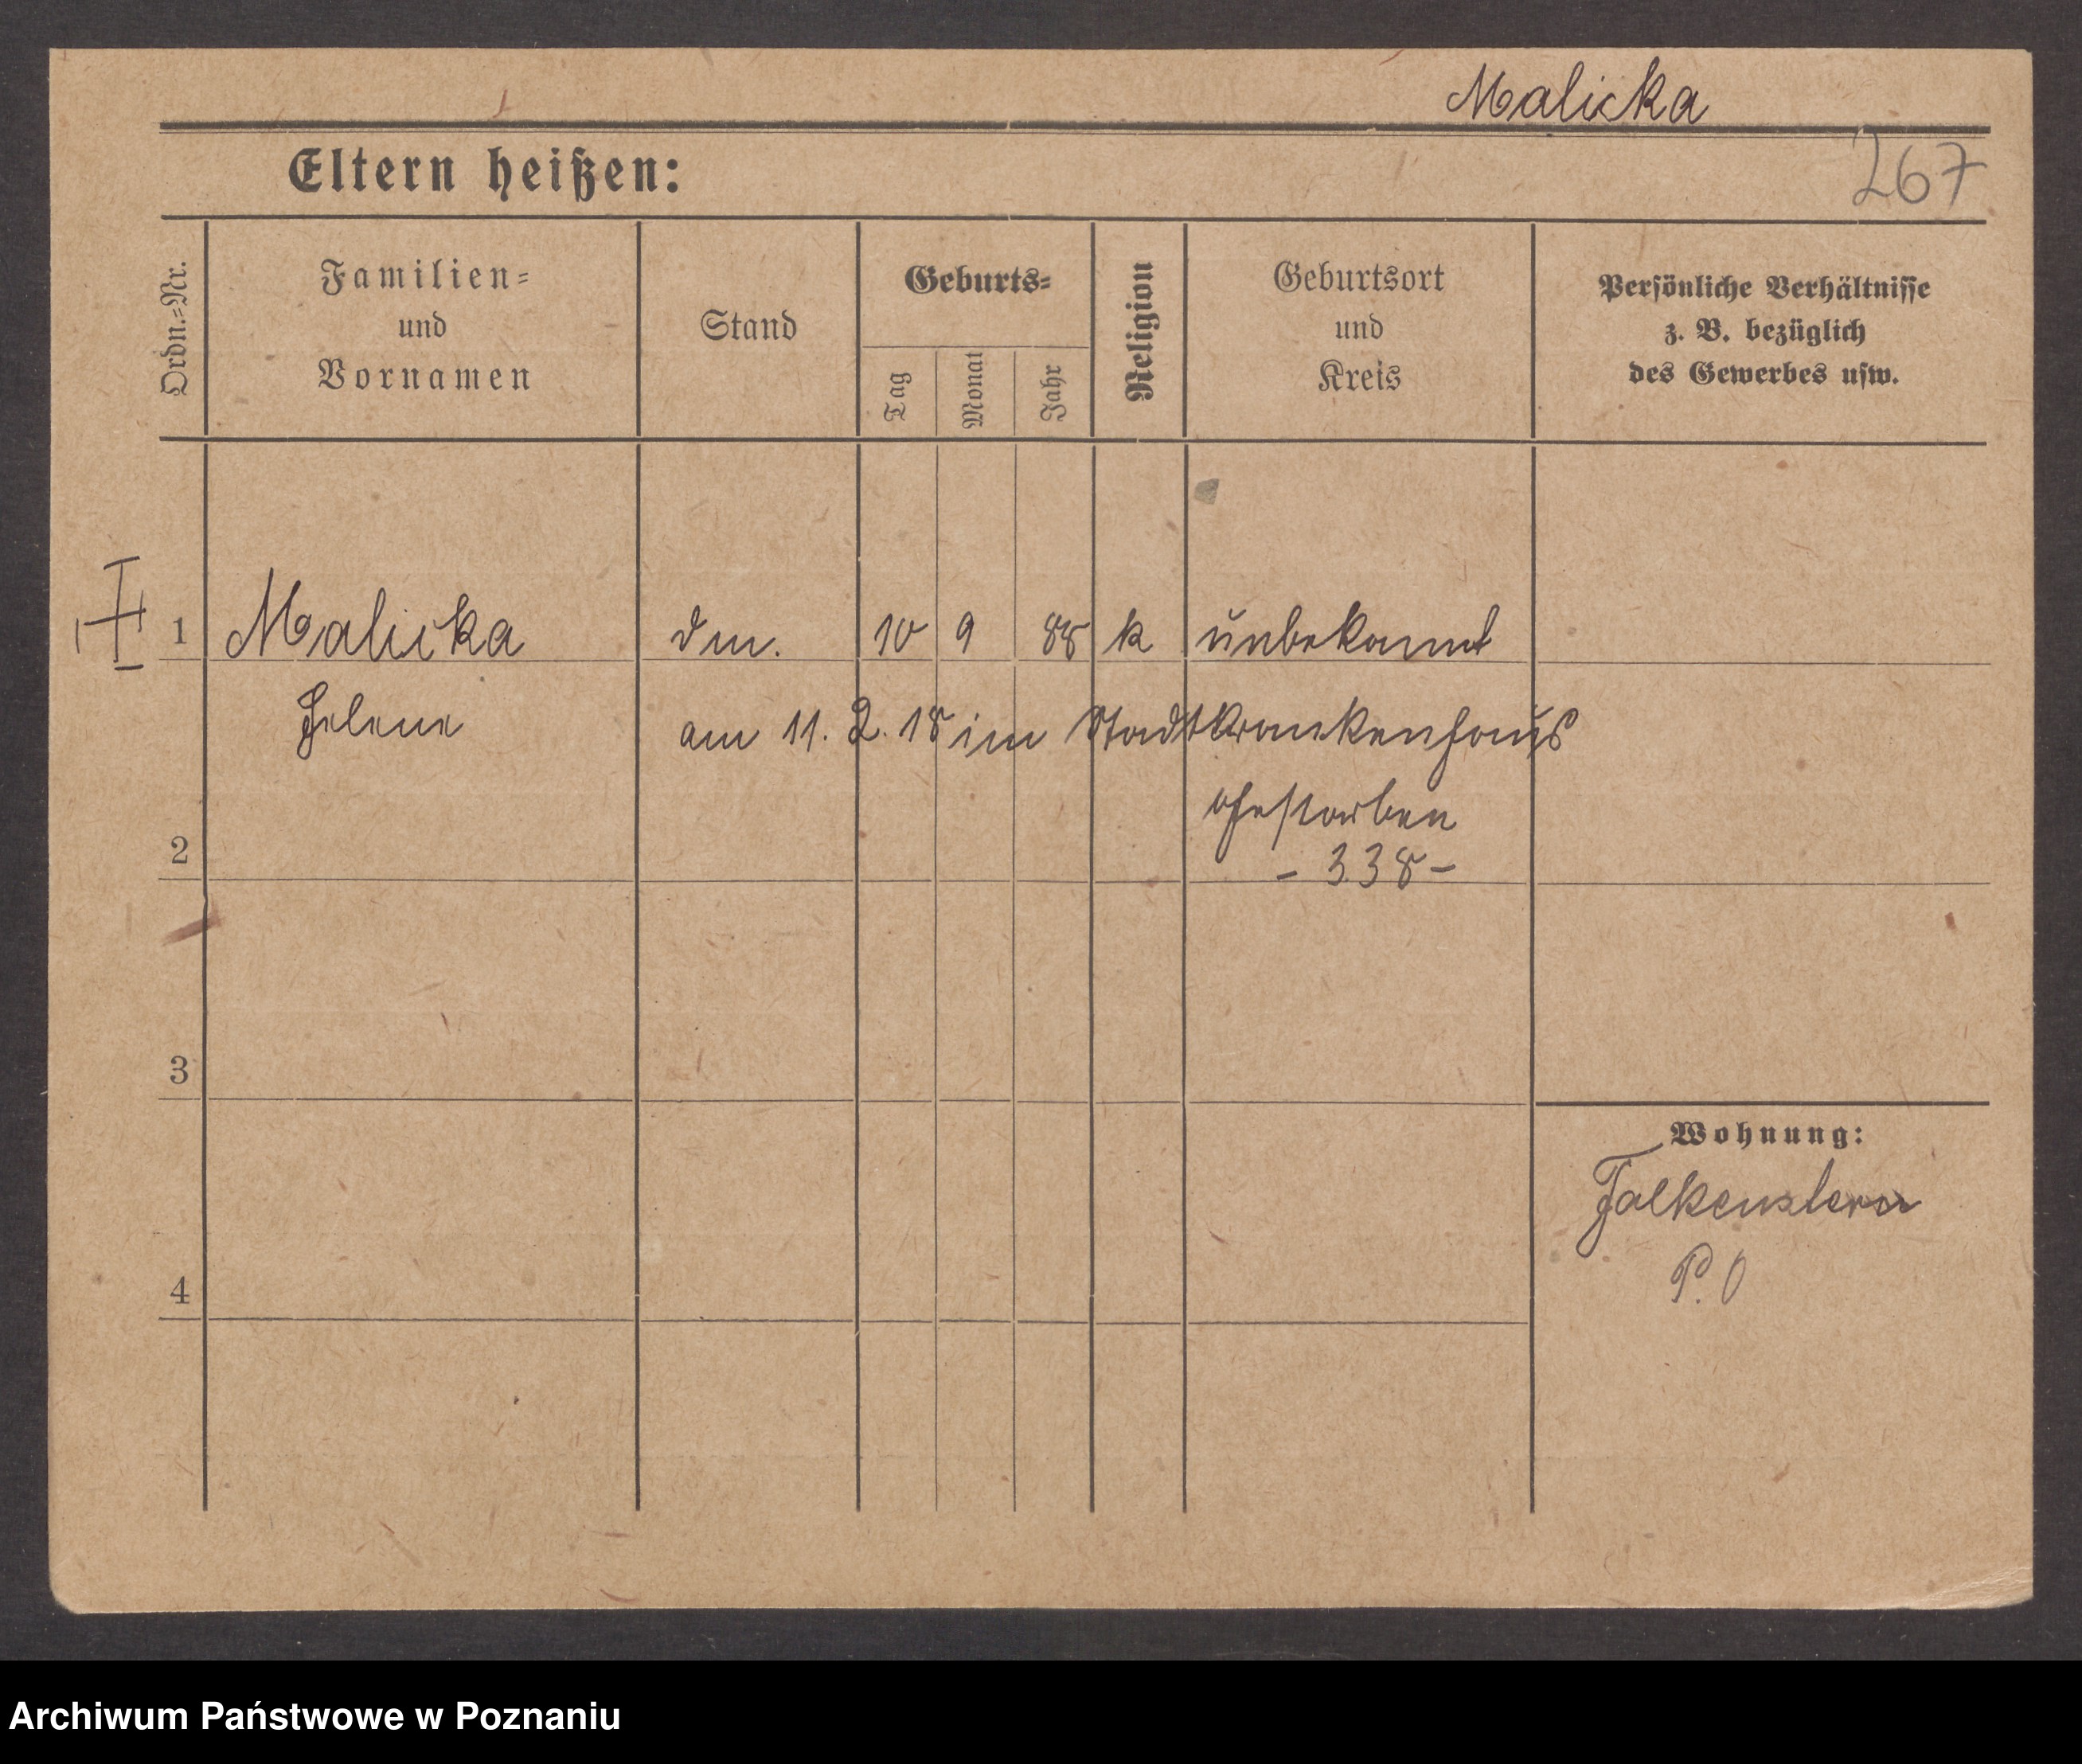 Malicka
Eltern heißen:
267
Ordn.=Nr.
Familien=
und
Vornamen
Stand
Geburts=
Tag
Monat
Jahr
Religion
Geburtsort
und
Kreis
Persönliche Verhältnisse
z. B. bezüglich
des Gewerbes usw.
1 Malicka 10 9 88 k unbekannt
Helene am 11. 2. 18 im Stadtkrankenhaus
gestorben
2 - 338 -
3
Wohnung:
Falkenstern
P. O
4
Archiwum Państwowe w Poznaniu